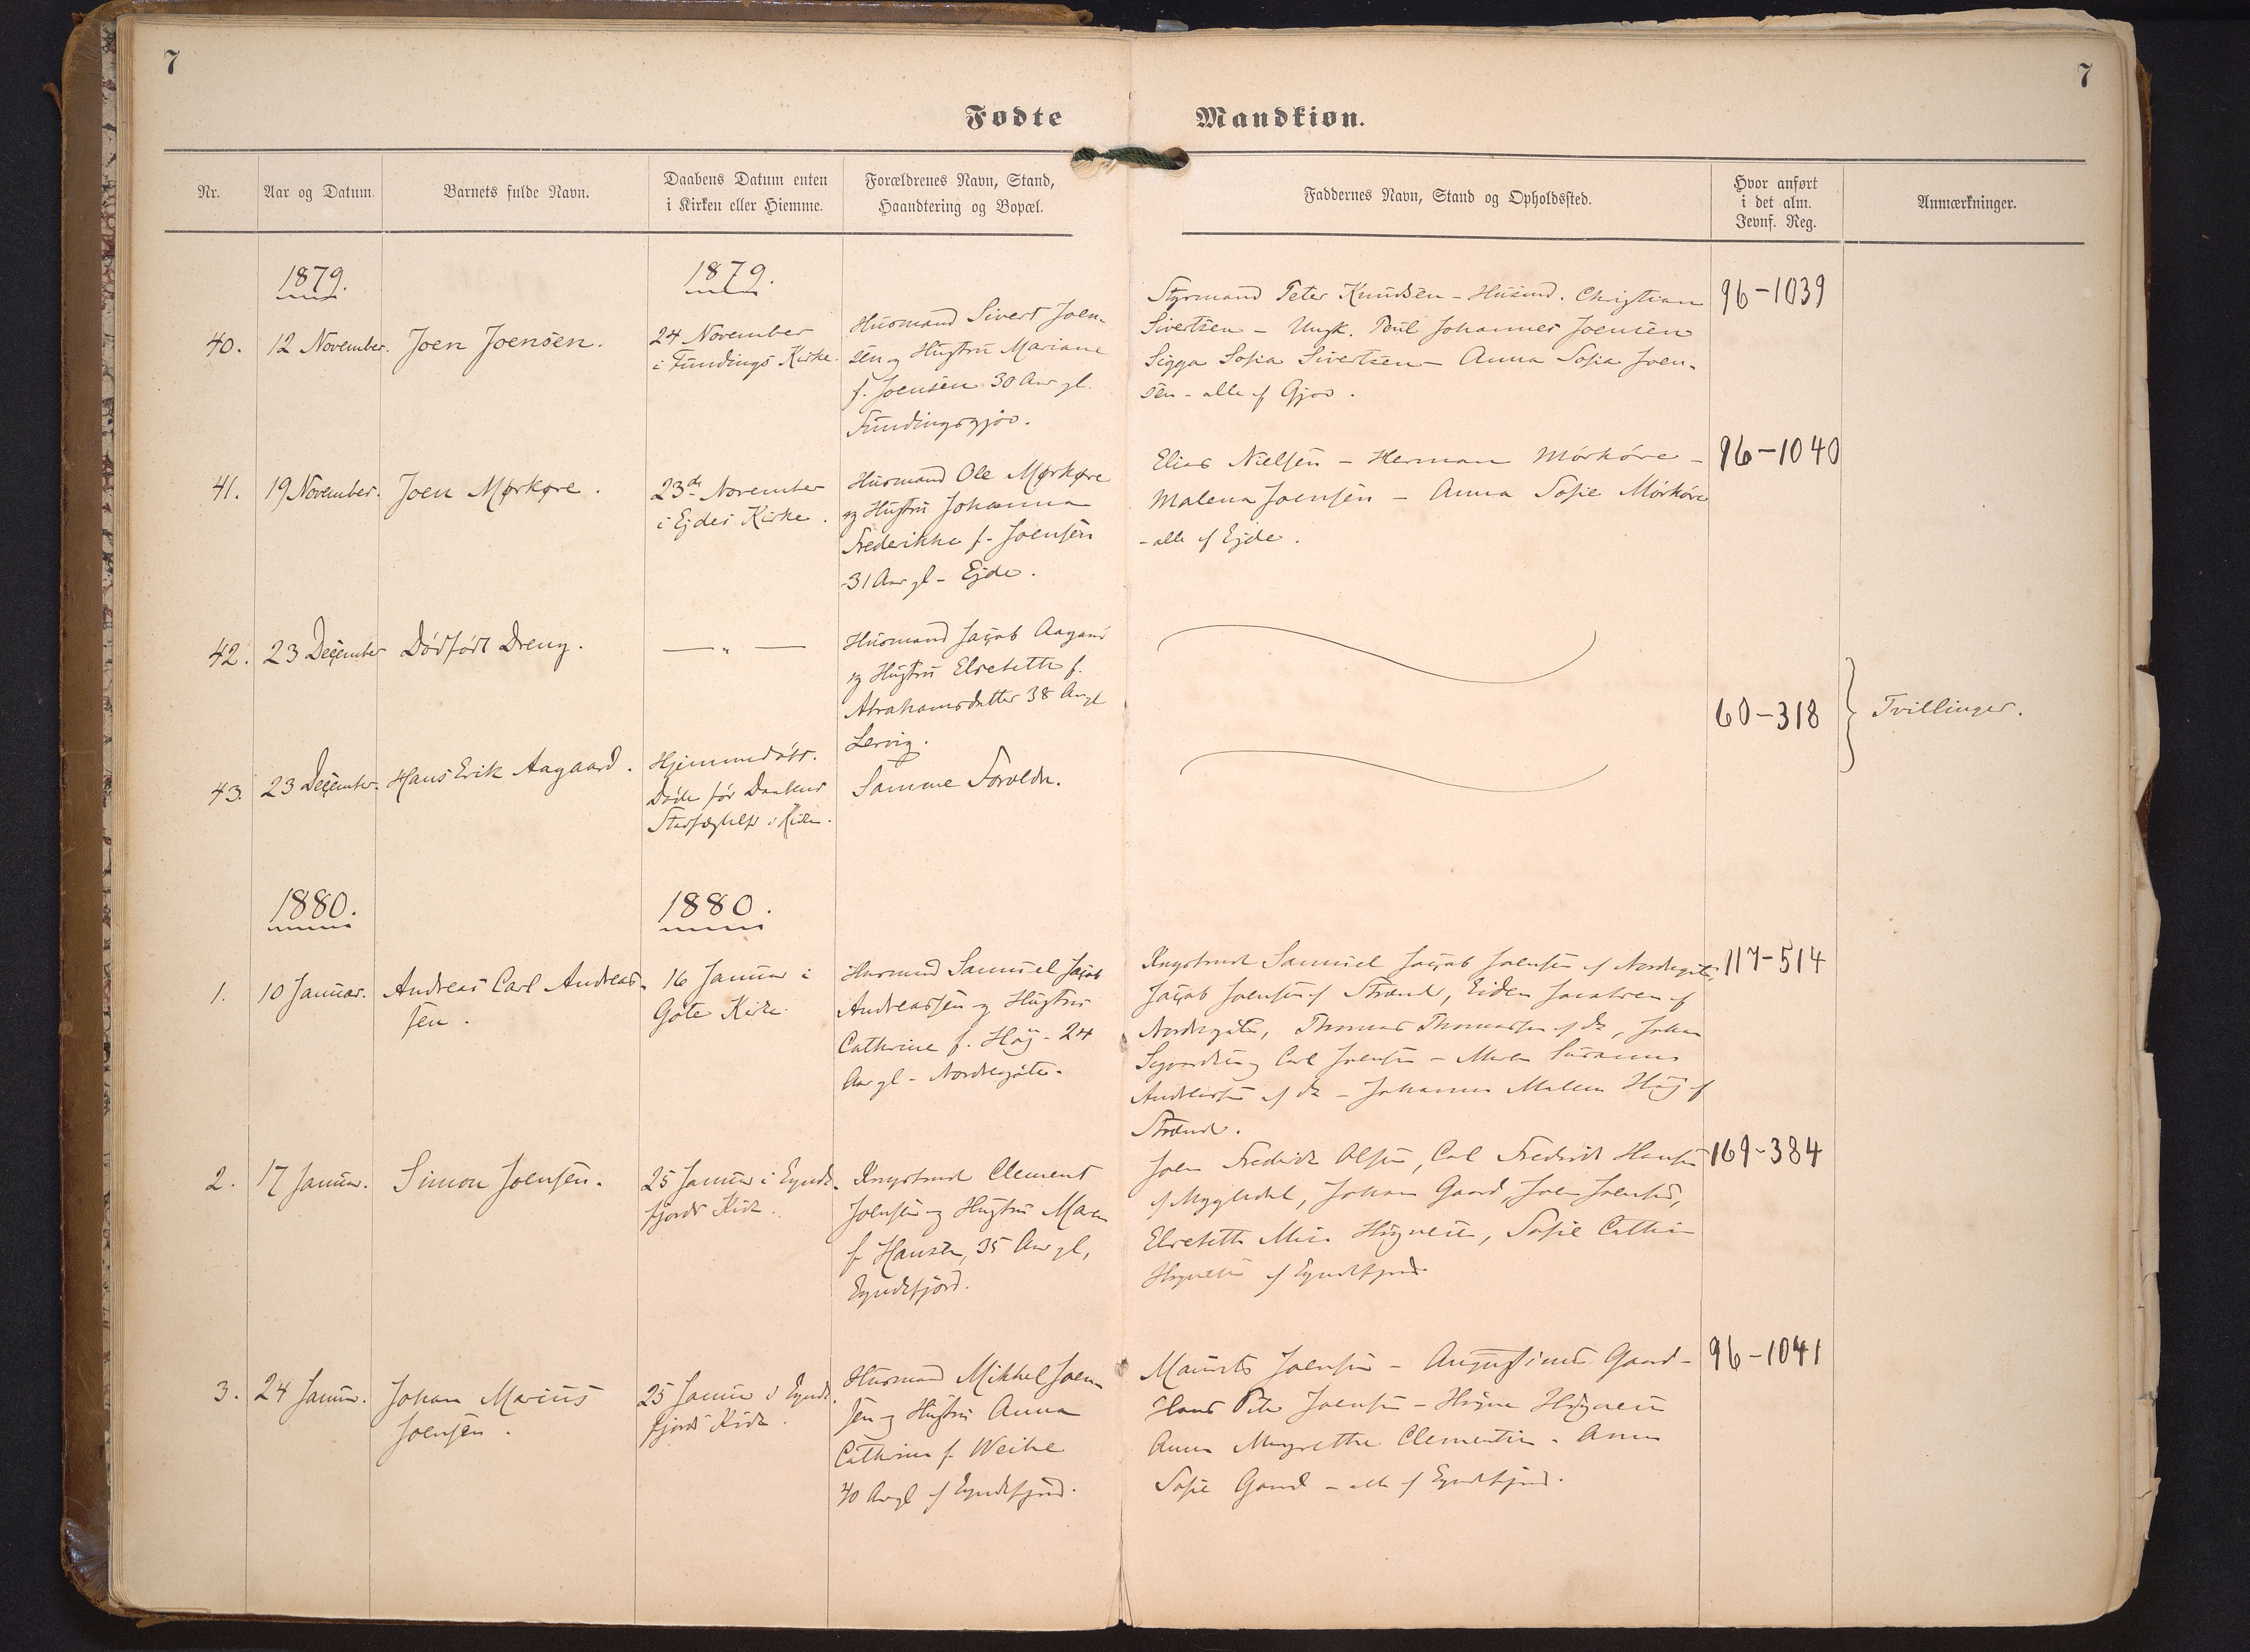 7
7
Fødte
Mandkiøn.
Nr.
Aar og Datum.
Barnets fulde Navn.
Daabens Datum enten
i Kirken eller Hiemme.
Forældrenes Navn, Stand,
Haandtering og Bopæl.
Faddernes Navn, Stand og Opholdssted.
Hvor anført
i det alm.
Jevnf. Reg.
Anmærkninger.
1879.
1879.
40.
12 November.
Joen Joensen.
24 November
i Fundings Kirke.
Husmand Sivert Joen-
sen og Hustru Mariane
f. Joensen 30 Aar gl.
Fundingsgjov.
Styrmand Peter Knudsen - Husmd. Christian
Sivertsen - Ungk. Poul Johannes Joensen
Sigga Sofia Sivertsen - Anna Sofia Joen-
sen - alle af Gjov.
96-1039
41.
19 November.
Joen Mørkøre.
23de November
i Ejdes Kirke.
Husmand Ole Mørkøre
og Hustru Johanna
Frederikke f. Joensen
31 Aar gl - Ejde.
Elias Nielsen - Herman Mörköre -
Malena Joensen - Anna Sofie Mörköre
- alle af Ejde.
96-1040
42.
23 December
Dödfödt Dreng.
— „ —
Husmand Jacob Aagaard
og Hustru Elsebeth f.
Abrahamsdatter 38 Aar gl
Lervig.
60-318
Tvillinger.
43.
23 December.
Hans Erik Aagaard.
Hjemmedöbt.
Döde för Daabens
Stadfæstelse i Kirken.
Samme Foreldre.
1880.
1880.
1.
10 Januar.
Andreas Carl Andreas-
sen.
16 Januar i
Göte Kirke.
Husmand Samuel Jacob
Andreassen og Hustru
Cathrine f. Høj - 24
Aar gl - Nordregöte.
Samuel Jacob Joensen af Nordregöte,
Jacob Joensen af Strænder, Joensen af
Nordregöte, Thomas Thomassen af do, Johan
og Carl Joensen - Maren Susanna
Andreassen af do - Johanne Malene Høj af
Strænder.
117-514
2.
17 Januar.
Simon Joensen.
25 Januar i Eynde-
fjords Kirke.
Clement
Joensen og Hustru Maren
f. Hansen, 35 Aar gl,
Eyndefjord.
Joen Fredrik Olsen, Carl Fredrik Hansen
af Mygledal, Johan Gaard, Joen Joensen,
Elsebeth Högnesen, Sofie
Högnesen af Eyndefjord
169-384
3.
24 Januar.
Johan Marius
Joensen.
25 Januar i Eynde-
fjords Kirke.
Husmand Mikkel Joen-
sen og Hustru Anna
Cathrine f. Weihe
40 Aar gl af Eyndefjord.
Joensen - Augustinus Gaard -
Hans Peter Joensen - Högne Högnesen
Anna Clementsen - Anna
Sofie Gaard - alle af Eyndefjord.
96-1041